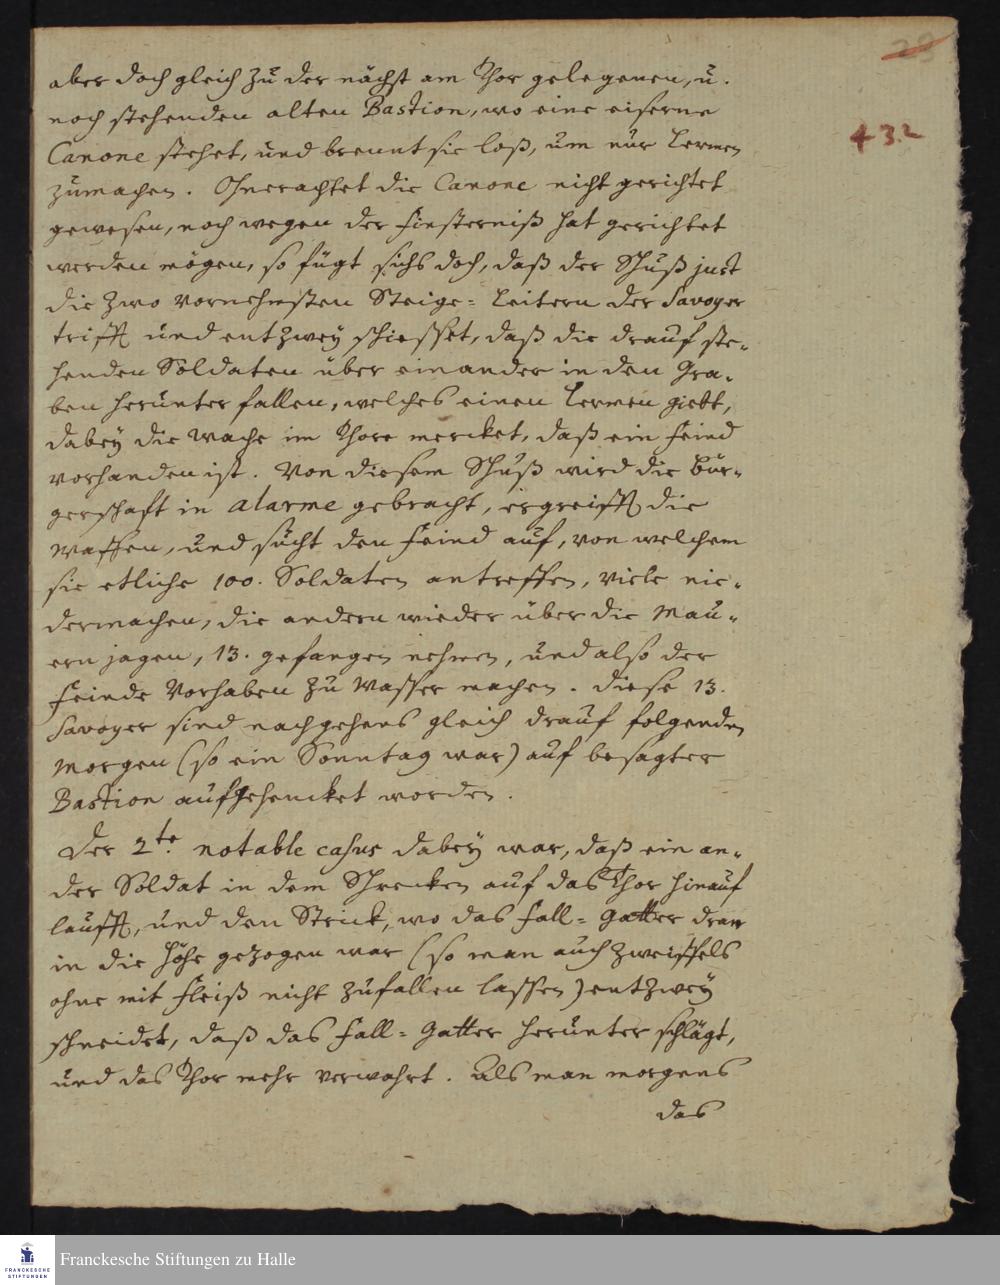 29
432
aber doch gleich zu der nächst am Thor gelegenen, u.
noch stehenden alten Bastion, wo eine eiserne
Canone stehet, und brennt sie loß, um nur Lermen
zumachen. Ohnerachtet die Canone nicht gerichtet
gewesen, noch wegen der Finsterniß hat gerichtet
werden mögen, so fügt sichs doch, daß der Schuß just
die zwo vornehmsten Steige= Leitern der Savoyer
trifft und entzwey schiesset, daß die drauf ste-
henden Soldaten über einander in den Gra-
ben herunter fallen, welches einen Lermen giebt,
dabey die Wache im Thore mercket, daß ein Feind
vorhanden ist. Von diesem Schuß wird die Bür-
gerschafft in alarme gebracht, ergreifft die
Waffen, und sucht den Feind auf, von welchem
sie etliche 100. Soldaten antreffen, viele nie-
dermachen, die andern wieder über die Mau-
ern jagen, 13. gefangen nehmen, und also der
Feinde Vorhaben zu Wasser machen. Diese 13.
Savoyer sind nachgehens gleich drauf folgenden
Morgen (so ein Sonntag war) auf besagter
Bastion aufgehencket worden.
Der 2te. notable casus dabey war, daß ein an-
der Soldat in dem Schrecken auf das Thor hinauf
laufft, und den Strick, wo das Fall= Gatter dran
in die Höhe gezogen war (so man auch zweiffels
ohne mit Fleiß nicht zufallen lassen) entzwey
schneidet, daß das Fall= Gatter herunter schlägt,
und das Thor mehr verwahrt. Als man morgens
das
FRANCKESCHE
STIFTUNGEN
Franckesche Stiftungen zu Halle